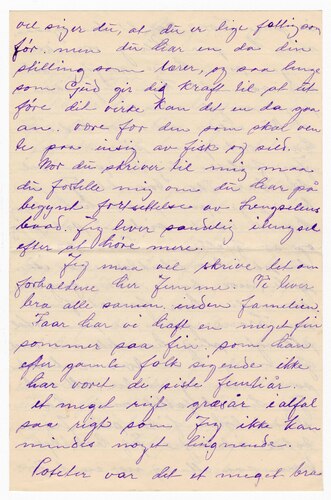 vel siger du, at du er lige fattig som
før. men du har en da din
stilling som lærer, og saa lenge
som Gud gir dig kraft til at ut
føre dit virke kan det en da gaa
an. værre for den som skal ven
te paa insig av fisk og sild.
Nor du skriver til mig maa
du fortelle mig om du har på
begynt fortsettelse av Lengselens
baad. Jeg lever sandelig i lengsel
efter at høre mere.
Jeg maa vel skrive litt om
forholdene her hjemme. Vi lever
bra alle samen inden familien.
I aar har vi haft en meget fin
sommer saa fin som han
efter gamle folk sigende ikke
har voret de siste femti år.
et meget rigt græsår i alfal
saa rigt som Jeg ikke kan
mindes noget lingnende.
Poteter var det et meget bra